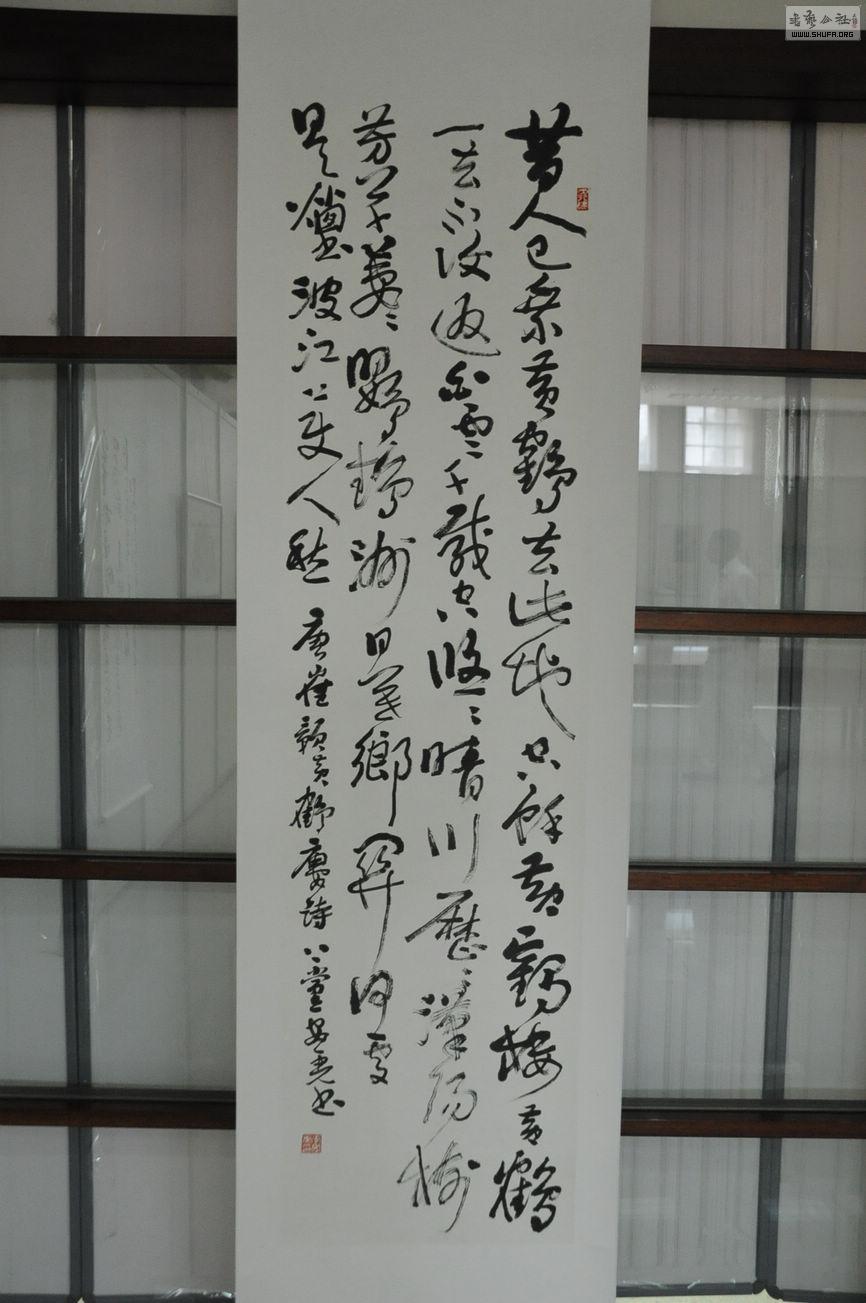 昔人已乘黃鶴去此地空餘黃鶴樓黃鶴
一去不復返白雲千載空悠〻晴川歷〻漢陽樹
芳草萋〻鸚鵡洲日暮鄉關何處
是煙波江上使人愁 唐崔顥黃鶴樓詩 堂書
書藝公社
WWW.SHUFA.ORG